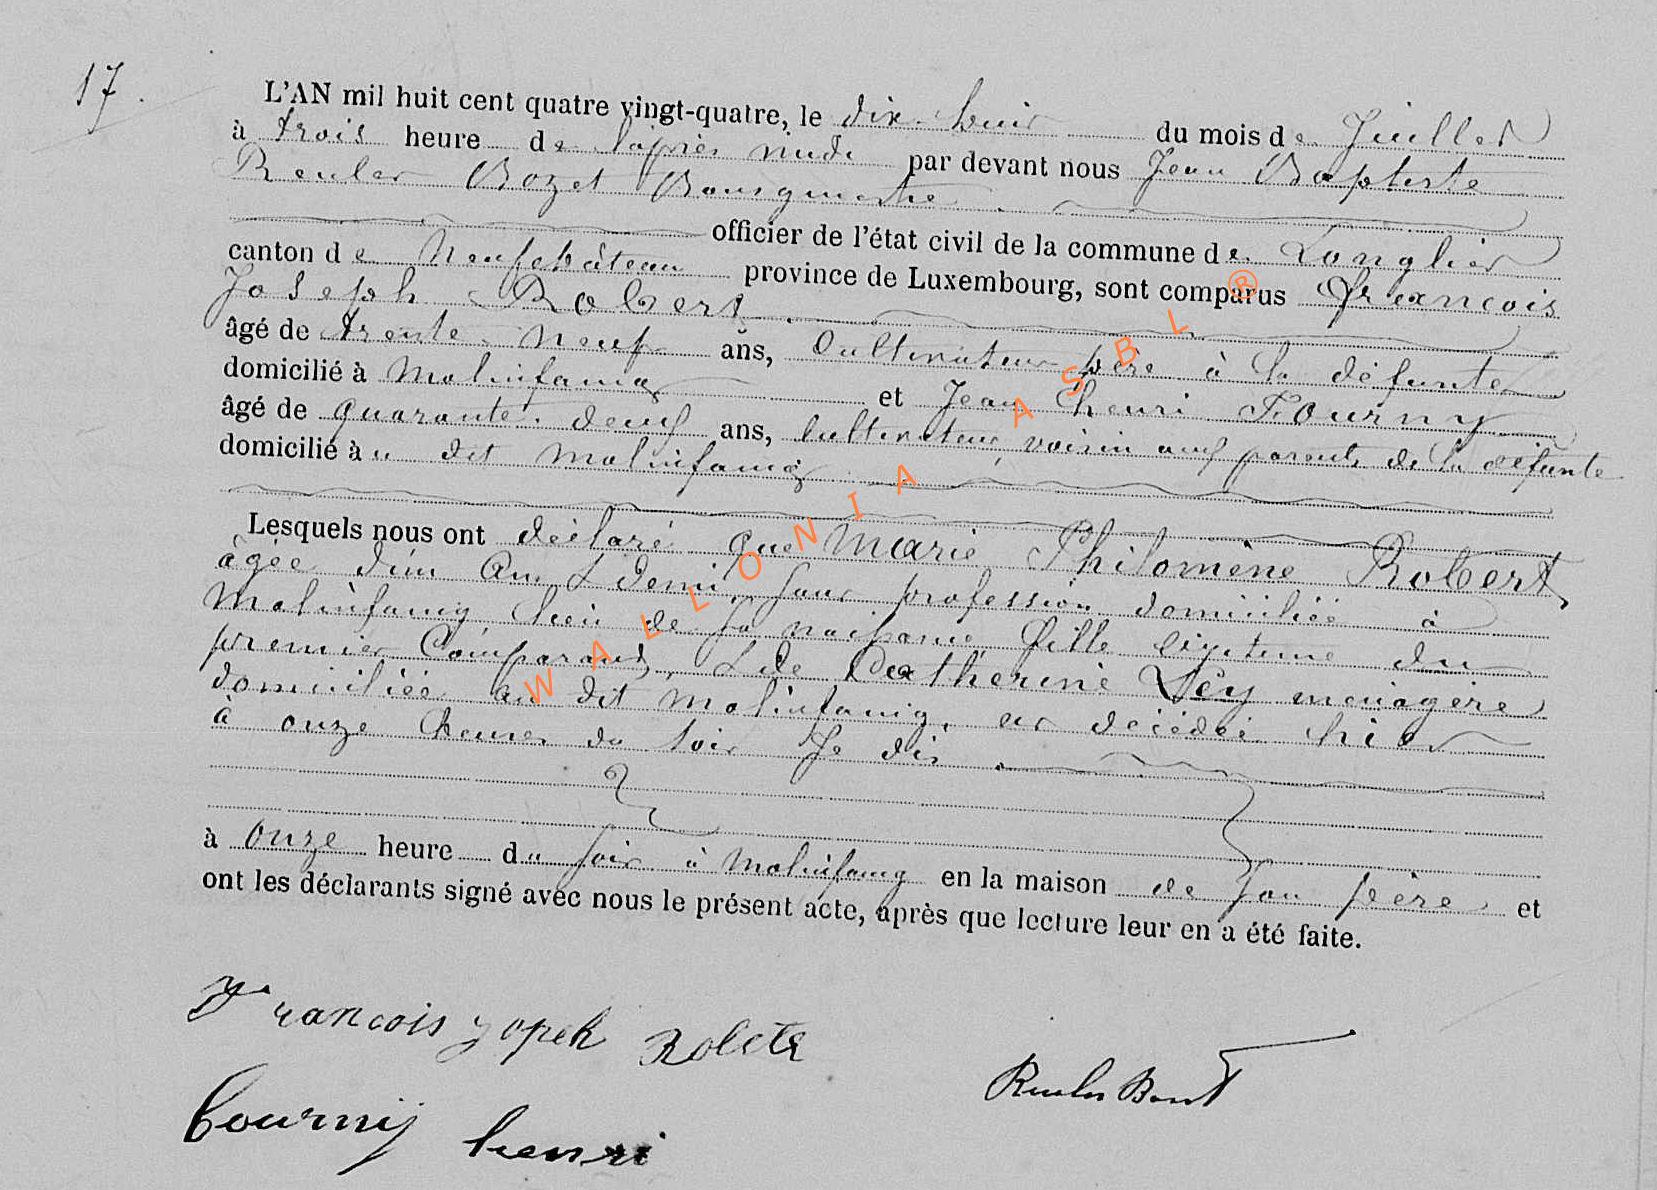 17.
L'AN mil huit cent quatre vingt-quatre, le dix-huit du mois de Juillet
à trois heure de l'après midi par devant nous Jean Baptiste
Reuler Bozet Bourgmestre
officier de l'état civil de la commune de Longlier
canton de Neufchâteau province de Luxembourg, sont comparus François
Joseph Robert
âgé de trente-neuf ans, Cultivateur père à la défunte
domicilié à Molinfaing et Jean henri Fourny
âgé de quarante-deux ans, Cultivateur, voisin aux parents de la défunte
domicilié à u dit Molinfaing
Lesquels nous ont déclaré que Marie Philomène Robert
âgée d'un An & demi, sans profession domiciliée à
Molinfaing lieu de sa naissance, fille légitime du
premier Comparant, & de Catherine Ley ménagère
domiciliée au dit Molinfaing, est décédée hier
à onze heures du soir Je dis
à onze heure du soir à Molinfaing en la maison de son père et
ont les déclarants signé avec nous le présent acte, après que lecture leur en a été faite.
François Joseph Robert
Reuler Bozet
fourny henri
WALLONIA ASBL ®